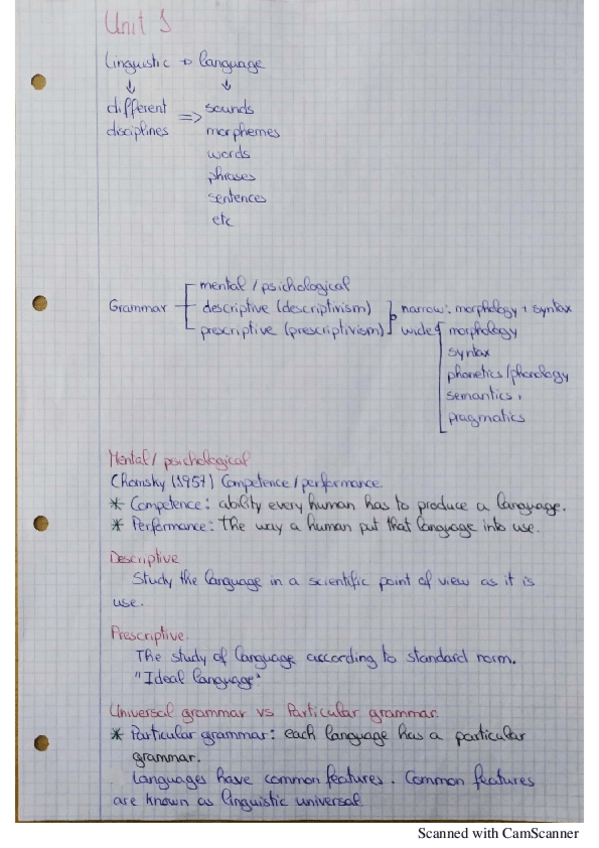 Unit 1
Linguistic → language
↓ ↓
different => sounds
disciplines morphemes
words
phrases
sentences
etc
mental / psichological
Grammar descriptive (descriptivism) narrow: morphology + syntax
prescriptive (prescriptivism) wide morphology
syntax
phonetics/phonology
semantics
pragmatics
Mental / psichological
Chomsky (1957) Competence / performance
* Competence: ability every human has to produce a language.
* Performance: the way a human put that language into use.
Descriptive
Study the language in a scientific point of view as it is
use.
Prescriptive
The study of language according to standard norm.
"Ideal language"
Universal grammar vs Particular grammar.
* Particular grammar: each language has a particular
grammar.
Languages have common features. Common features
are known as linguistic universal
Scanned with CamScanner